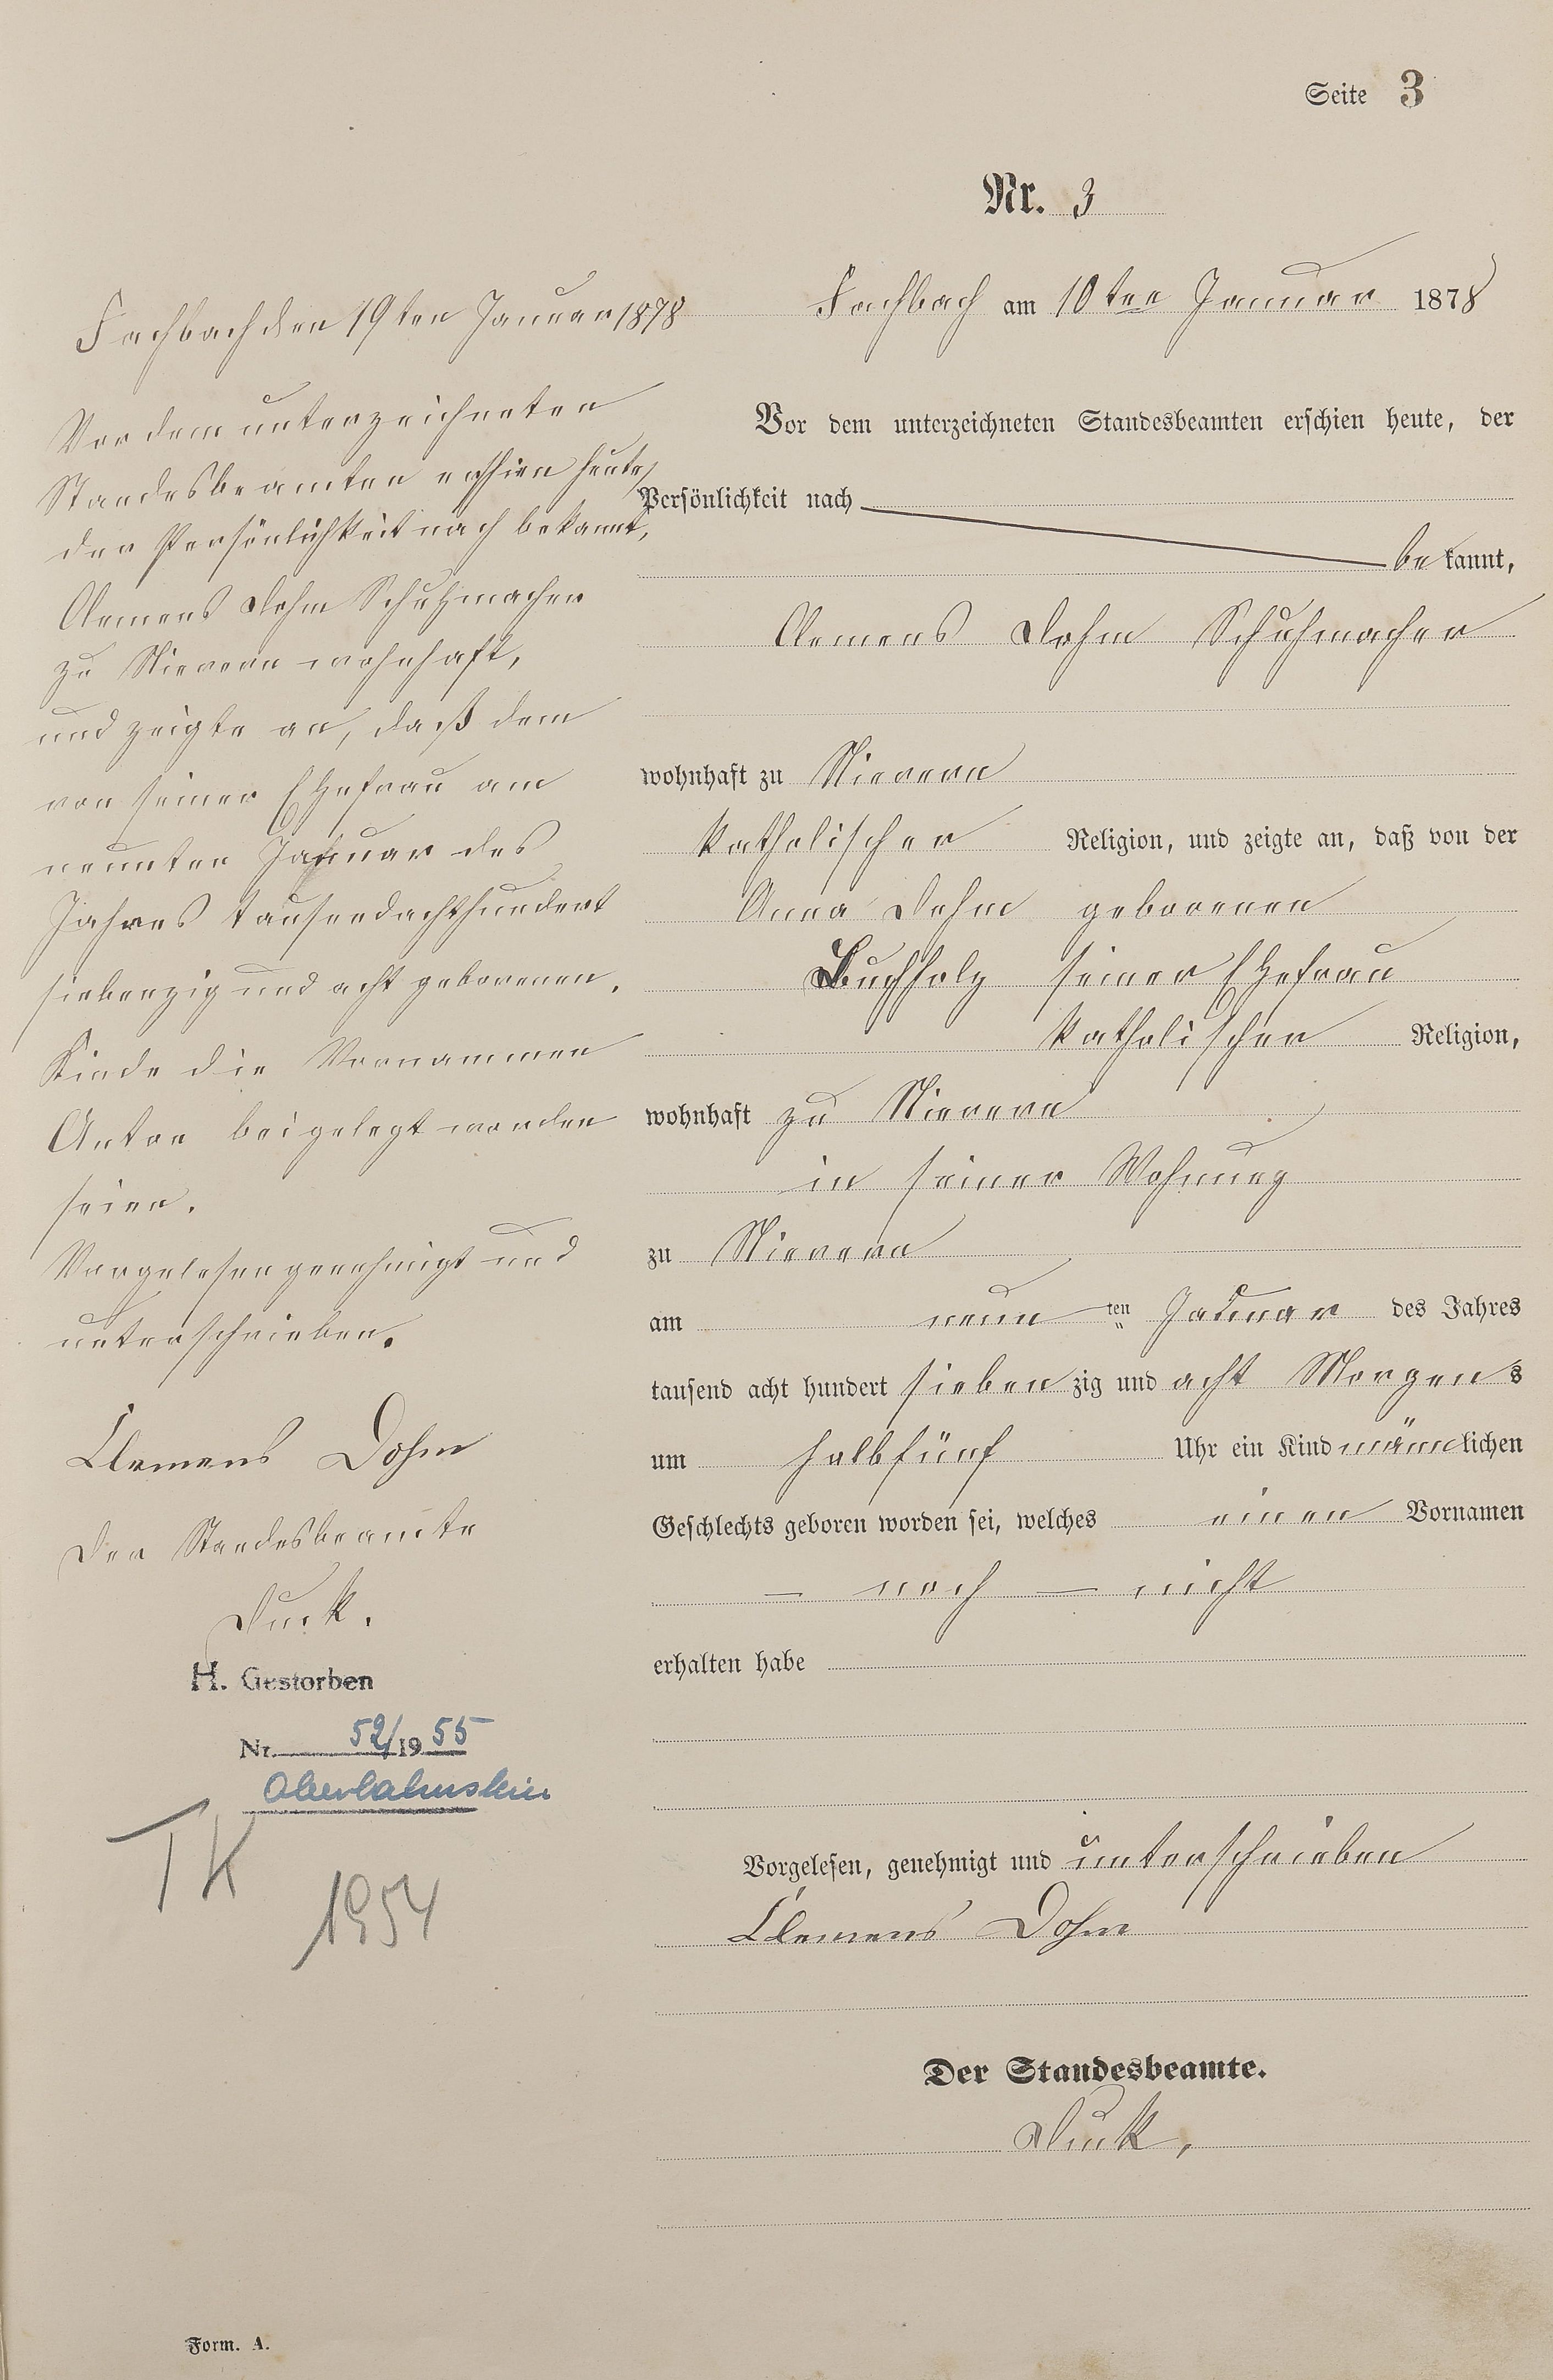 Seite 3
Nr. 3
Fachbach am 10ten Januar 1878
Vor dem unterzeichneten Standesbeamten erschien heute, der
Persönlichkeit nach
bekannt,
Clemens Dohm Schuhmacher
wohnhaft zu Nievern
katholischer Religion, und zeigte an, daß von der
Anna Dohm geborenen
Buchholz seiner Ehefrau
katholischer Religion,
wohnhaft zu Nievern
in seiner Wohnung
zu Nievern
am neun ten Januar des Jahres
tausend acht hundert siebenzig und acht Morgens
um halbfünf Uhr ein Kind männlichen
Geschlechts geboren worden sei, welches einen Vornamen
— noch — nicht
erhalten habe
Vorgelesen, genehmigt und unterschrieben
Clemens Dohm
Der Standesbeamte.
Duck.
Fachbach den 19ten Januar 1878
Vor dem unterzeichneten
Standesbeamten erschien heute,
der Persönlichkeit nach bekannt,
Clemens Dohm Schuhmacher
zu Nievern wohnhaft,
und zeigte an, daß dem
von seiner Ehefrau am
neunten Januar des
Jahres tausendachthundert
siebenzig und acht geborenen
Kinde die Vornammen
Anton beigelegt worden
seien.
Vorgelesen genehmigt und
unterschrieben.
Clemens Dohm
Der Standesbeamte
Duck.
H. Gestorben
Nr. 52/1955
Oberlahnstein
TK
1954
Form. A.